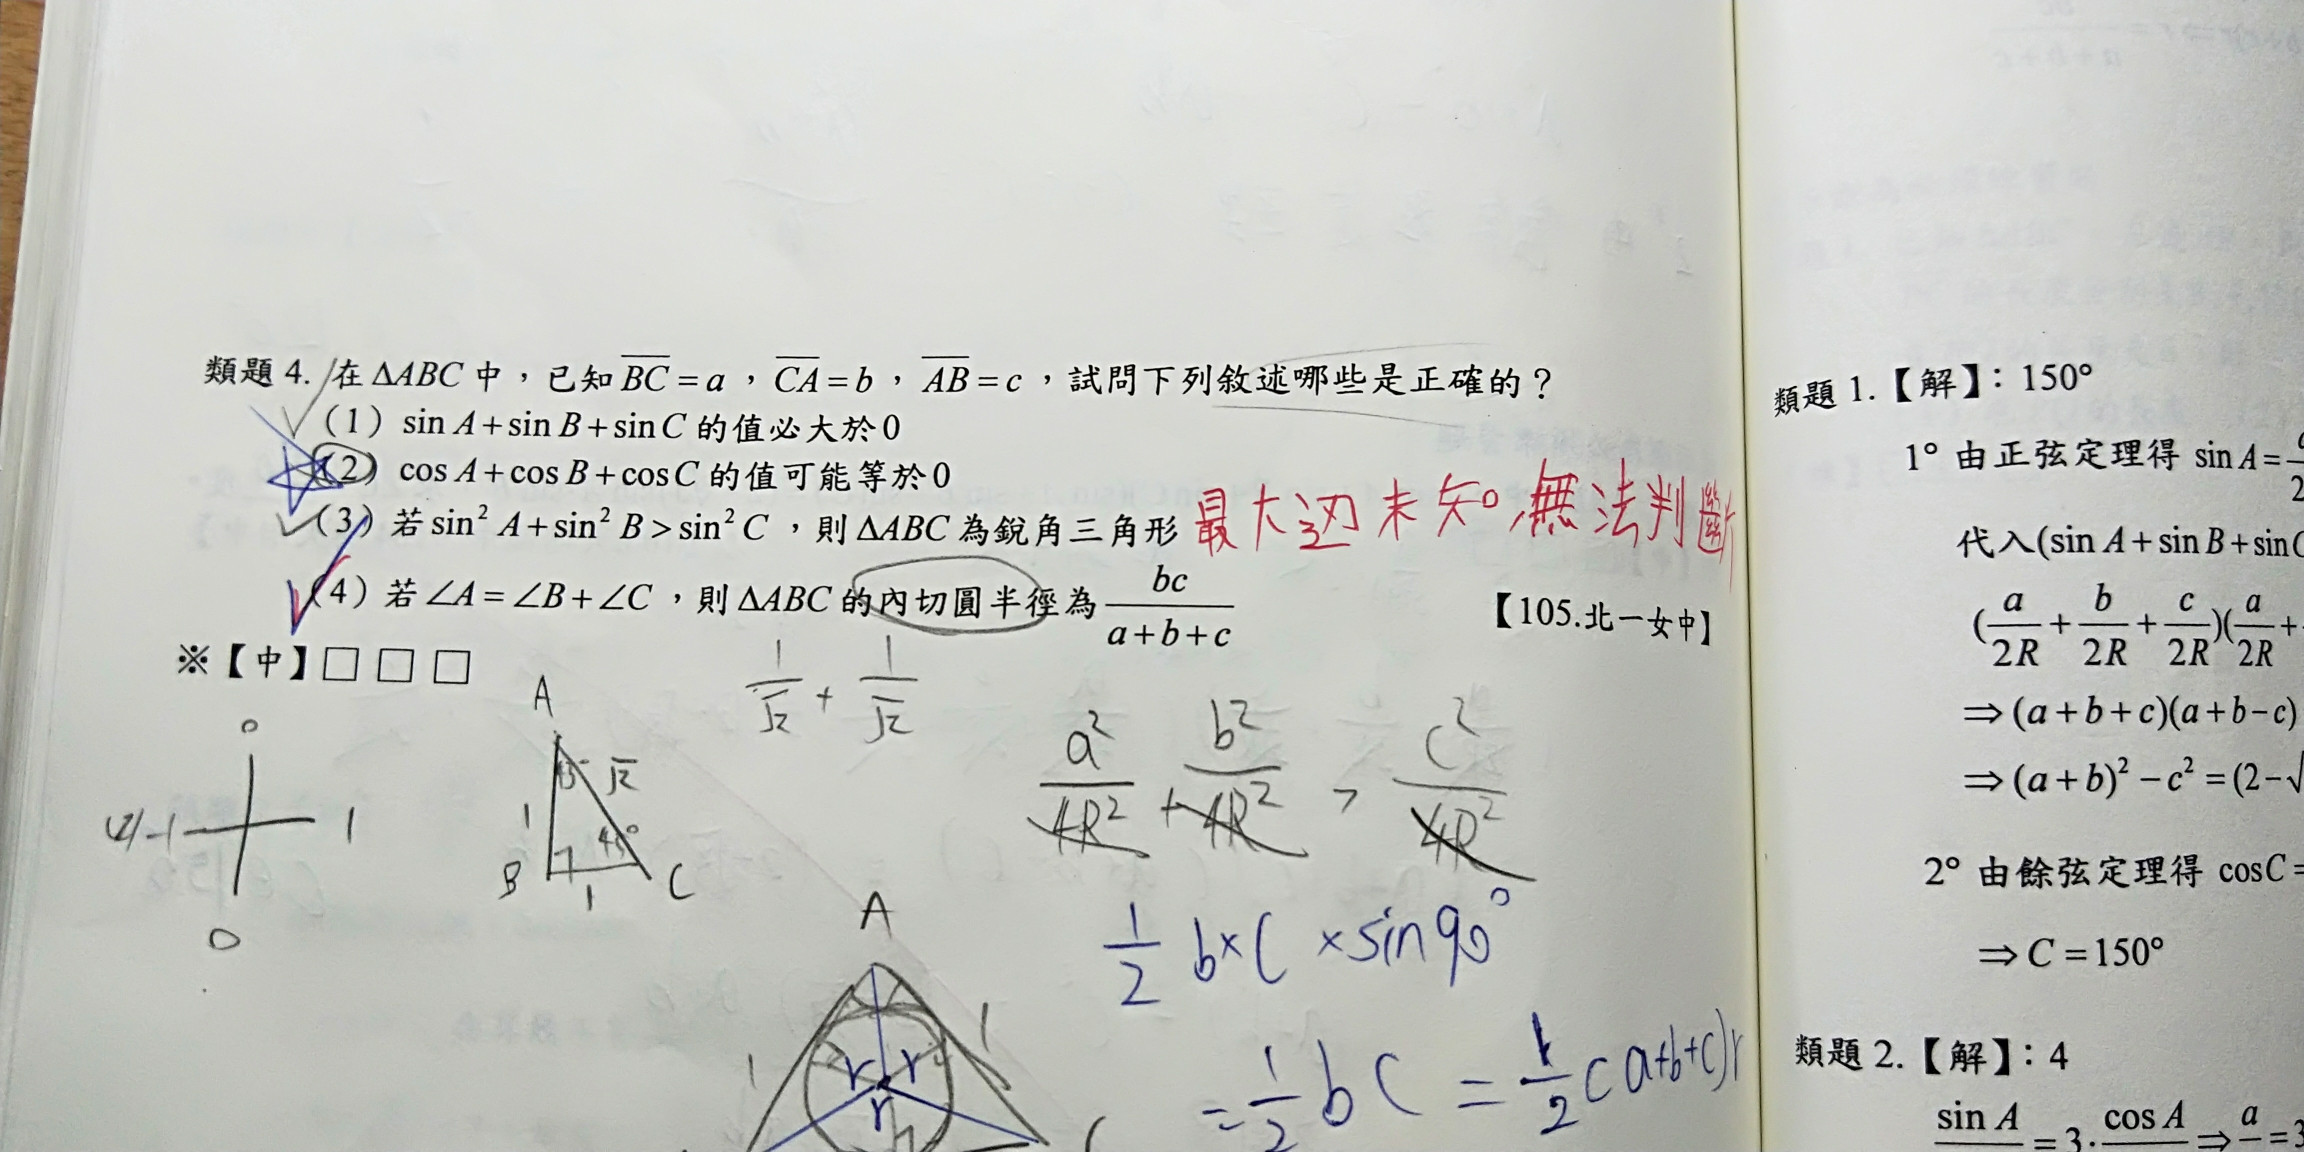 類題4. 在 ΔABC 中，已知 \overline{BC} = a，\overline{CA} = b，\overline{AB} = c，試問下列敘述哪些是正確的？
(1) sin A + sin B + sin C 的值必大於0
(2) cos A + cos B + cos C 的值可能等於0
(3) 若 sin² A + sin² B > sin² C，則 ΔABC 為銳角三角形 最大边未知,無法判斷
(4) 若 ∠A = ∠B + ∠C，則 ΔABC 的內切圓半徑為 bc/(a+b+c) 【105.北一女中】
※【中】□ □ □
1/√2 + 1/√2
0
-1 1
0
A
√2
1
45°
B 1 C
a²/4R² + b²/4R² > c²/4R²
1/2 b×c ×sin90°
= 1/2 bc = 1/2 (a+b+c)r
A
1 1
r r
r
C
類題1.【解】：150°
1° 由正弦定理得 sin A =
代入(sin A + sin B + sin
(a/2R + b/2R + c/2R)(a/2R +
⇒ (a+b+c)(a+b−c)
⇒ (a+b)² − c² = (2−√
2° 由餘弦定理得 cosC =
⇒ C = 150°
類題2.【解】：4
sin A = 3· cos A ⇒ a = 3